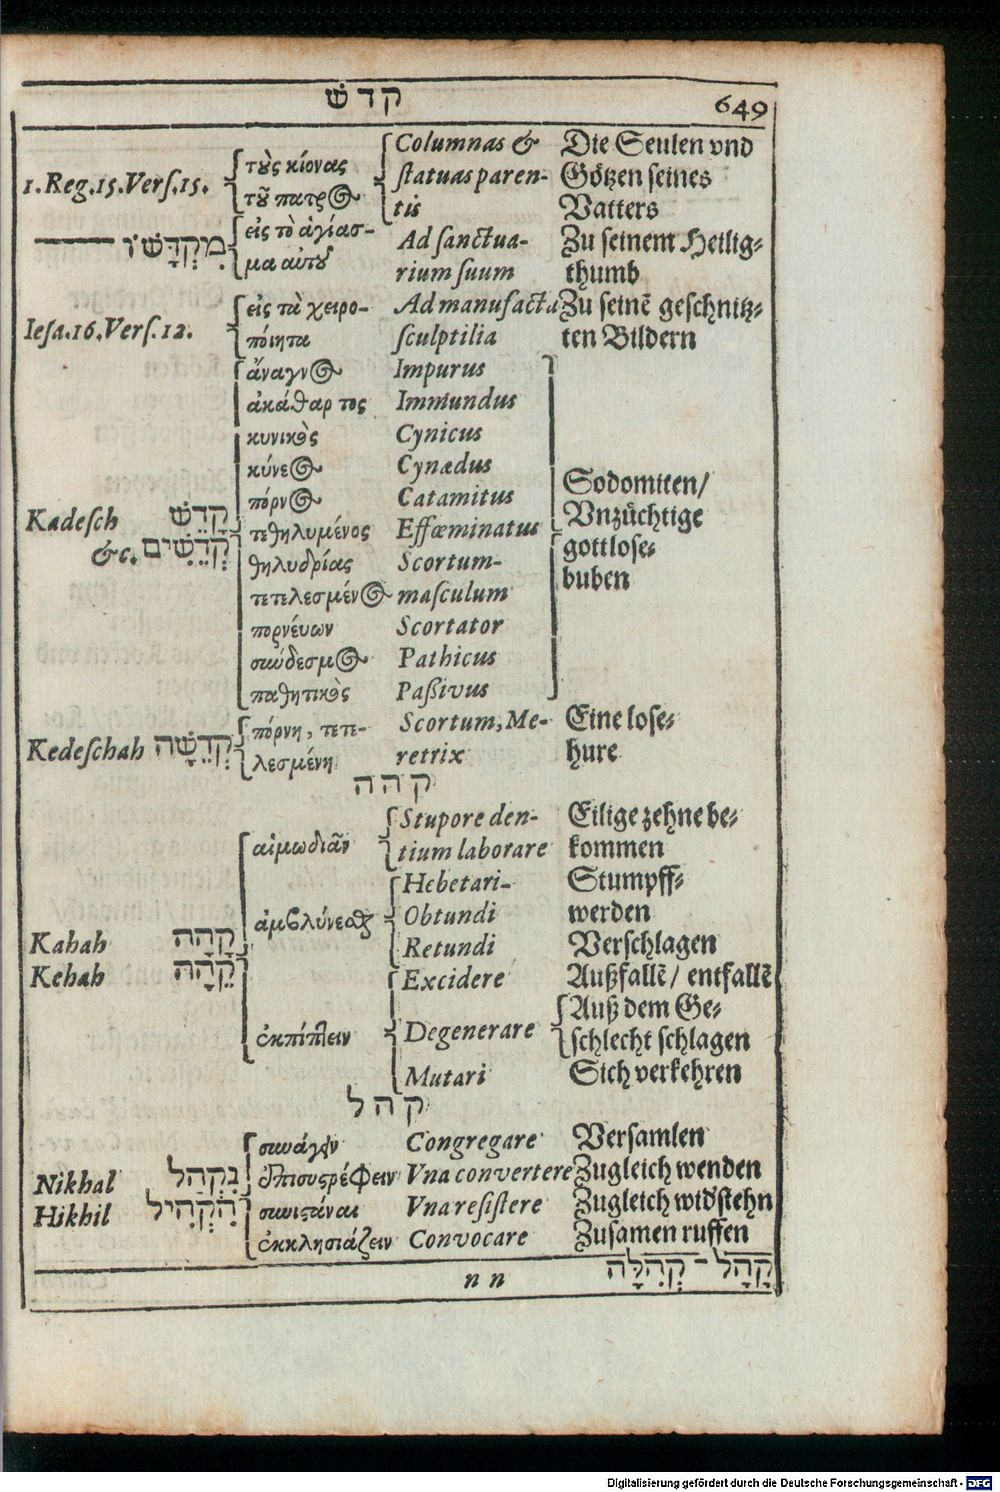 קדש 649
1. Reg. 15. Vers. 15. τοὺς κίονας Columnas & Die Seulen vnd
τοῦ πατρὸς statuas paren- Götzen seines
tis Vatters
מִקְדָּשׁוֹ εἰς τὸ ἁγίας- Ad sanctua- Zu seinem Heilig-
μα αὐτοῦ rium suum thumb
Iesa. 16. Vers. 12. εἰς τὰ χειρο- Ad manufacta Zu seinē geschnitz-
πόιητα sculptilia ten Bildern
ἄναγνος Impurus
ἀκάθαρτος Immundus
κυνικὸς Cynicus
κύνεος Cynædus Sodomiten/
πόρνος Catamitus Vnzüchtige
Kadesch קָדֵשׁ τεθηλυμένος Effœminatus gottlose-
&c. קְדֵשִׁים θηλυδρίας Scortum- buben
τετελεσμένος masculum
πορνέυων Scortator
σωύδεσμος Pathicus
παθητικὸς Paßivus
Kedeschah קְדֵשָׁה πόρνη, τετε- Scortum, Me- Eine lose-
λεσμένη retrix hure
קהה
αἱμωδιᾶν Stupore den- Eilige zehne be-
tium laborare kommen
Hebetari- Stumpff-
ἀμβλύνεσθαι Obtundi werden
Kahah קָהָה Retundi Verschlagen
Kehah קֵהָה Excidere Außfallē/ entfallē
ἐκπίπτειν Degenerare Auß dem Ge-
schlecht schlagen
Mutari Sich verkehren
קהל
συνάγειν Congregare Versamlen
Nikhal נִקְהַל ἐπισυστρέφειν Vna convertere Zugleich wenden
Hikhil הִקְהִיל συνιστάναι Vna resistere Zugleich widstehn
ἐκκλησιάζειν Convocare Zusamen ruffen
n n קָהָל - קְהִלָּה
Digitalisierung gefördert durch die Deutsche Forschungsgemeinschaft - DFG